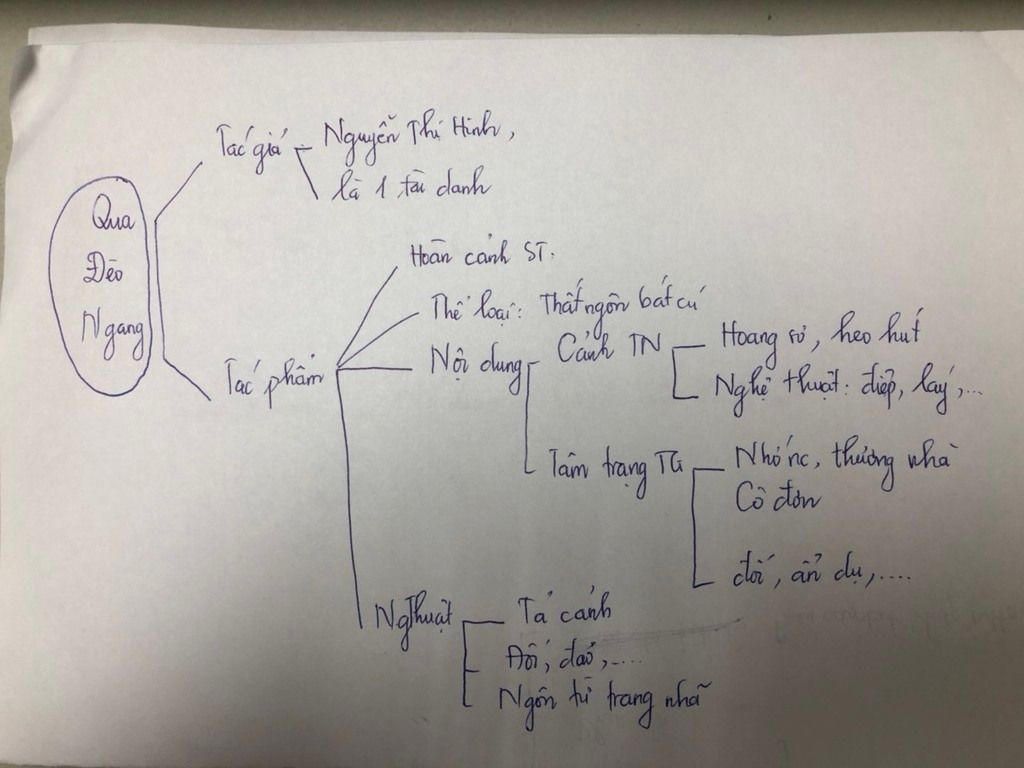 Qua
Đèo
Ngang
Tác giả
Nguyễn Thị Hinh,
là 1 tài danh
Tác phẩm
Hoàn cảnh ST.
Thể loại: Thất ngôn bát cú
Nội dung
Cảnh TN
Hoang sơ, heo hút
Nghệ thuật: điệp, láy,...
Tâm trạng TG
Nhớ nc, thương nhà
Cô đơn
đối, ẩn dụ,....
Ng thuật
Tả cảnh
Đối, đảo,....
Ngôn từ trang nhã